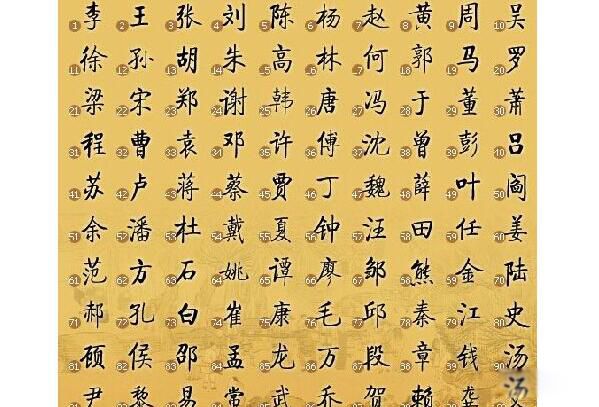 1李 2王 3张 4刘 5陈 6杨 7赵 8黄 9周 10吴
11徐 12孙 13胡 14朱 15高 16林 17何 18郭 19马 20罗
21梁 22宋 23郑 24谢 25韩 26唐 27冯 28于 29董 30萧
31程 32曹 33袁 34邓 35许 36傅 37沈 38曾 39彭 40吕
41苏 42卢 43蒋 44蔡 45贾 46丁 47魏 48薛 49叶 50阎
51余 52潘 53杜 54戴 55夏 56钟 57汪 58田 59任 60姜
61范 62方 63石 64姚 65谭 66廖 67邹 68熊 69金 70陆
71郝 72孔 73白 74崔 75康 76毛 77邱 78秦 79江 80史
81顾 82侯 83邵 84孟 85龙 86万 87段 88章 89钱 90汤
尹 黎 易 常 武 乔 贺 赖 龚